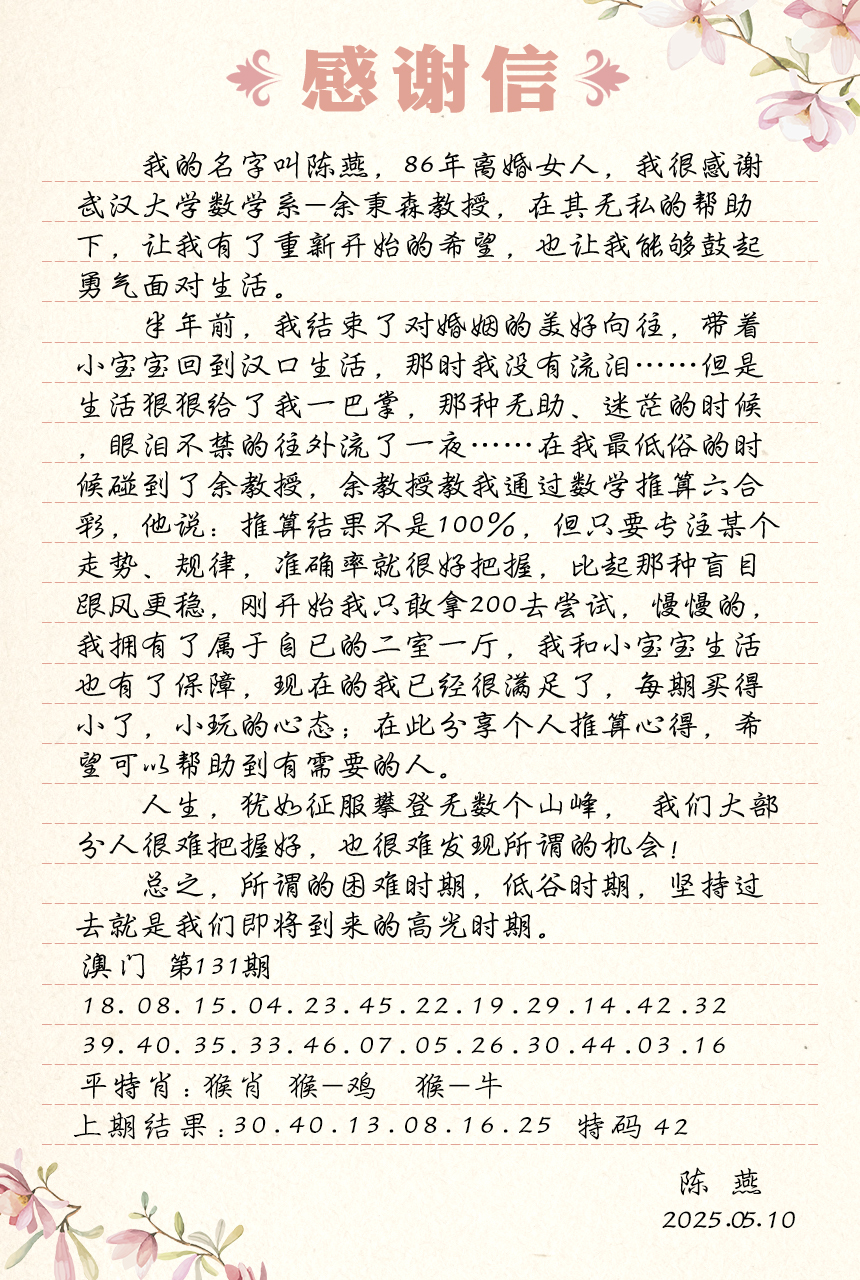 感谢信
我的名字叫陈燕，86年离婚女人，我很感谢
武汉大学数学系—余秉森教授，在其无私的帮助
下，让我有了重新开始的希望，也让我能够鼓起
勇气面对生活。
半年前，我结束了对婚姻的美好向往，带着
小宝宝回到汉口生活，那时我没有流泪……但是
生活狠狠给了我一巴掌，那种无助、迷茫的时候
，眼泪不禁的往外流了一夜……在我最低俗的时
候碰到了余教授，余教授教我通过数学推算六合
彩，他说：推算结果不是100%，但只要专注某个
走势、规律，准确率就很好把握，比起那种盲目
跟风更稳，刚开始我只敢拿200去尝试，慢慢的，
我拥有了属于自已的二室一厅，我和小宝宝生活
也有了保障，现在的我已经很满足了，每期买得
小了，小玩的心态；在此分享个人推算心得，希
望可以帮助到有需要的人。
人生，犹如征服攀登无数个山峰， 我们大部
分人很难把握好，也很难发现所谓的机会！
总之，所谓的困难时期，低谷时期，坚持过
去就是我们即将到来的高光时期。
澳门 第131期
18.08.15.04.23.45.22.19.29.14.42.32
39.40.35.33.46.07.05.26.30.44.03.16
平特肖：猴肖 猴—鸡 猴—牛
上期结果：30.40.13.08.16.25 特码 42
陈 燕
2025.05.10